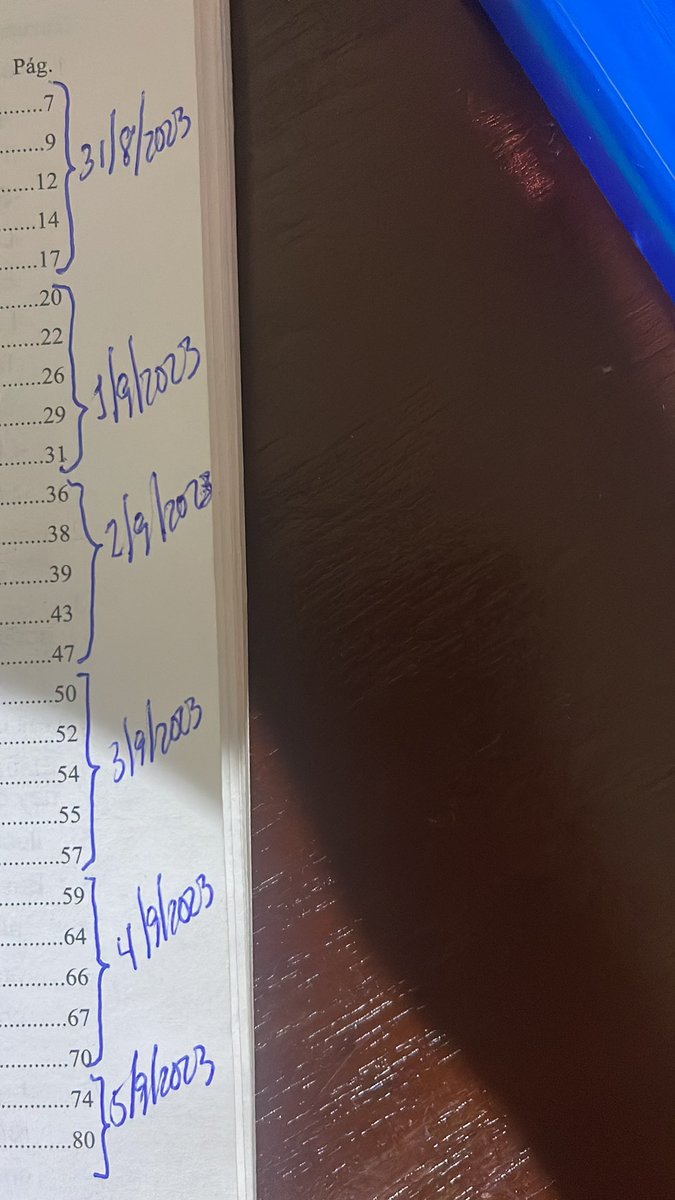 Pág.
.......7
.......9
......12
......14
......17
31/8/2023
.......20
.......22
.......26
.......29
.......31
1/9/2023
........36
........38
........39
........43
........47
2/9/2023
.........50
.........52
.........54
.........55
.........57
3/9/2023
..........59
..........64
..........66
..........67
..........70
4/9/2023
...........74
...........80
5/9/2023